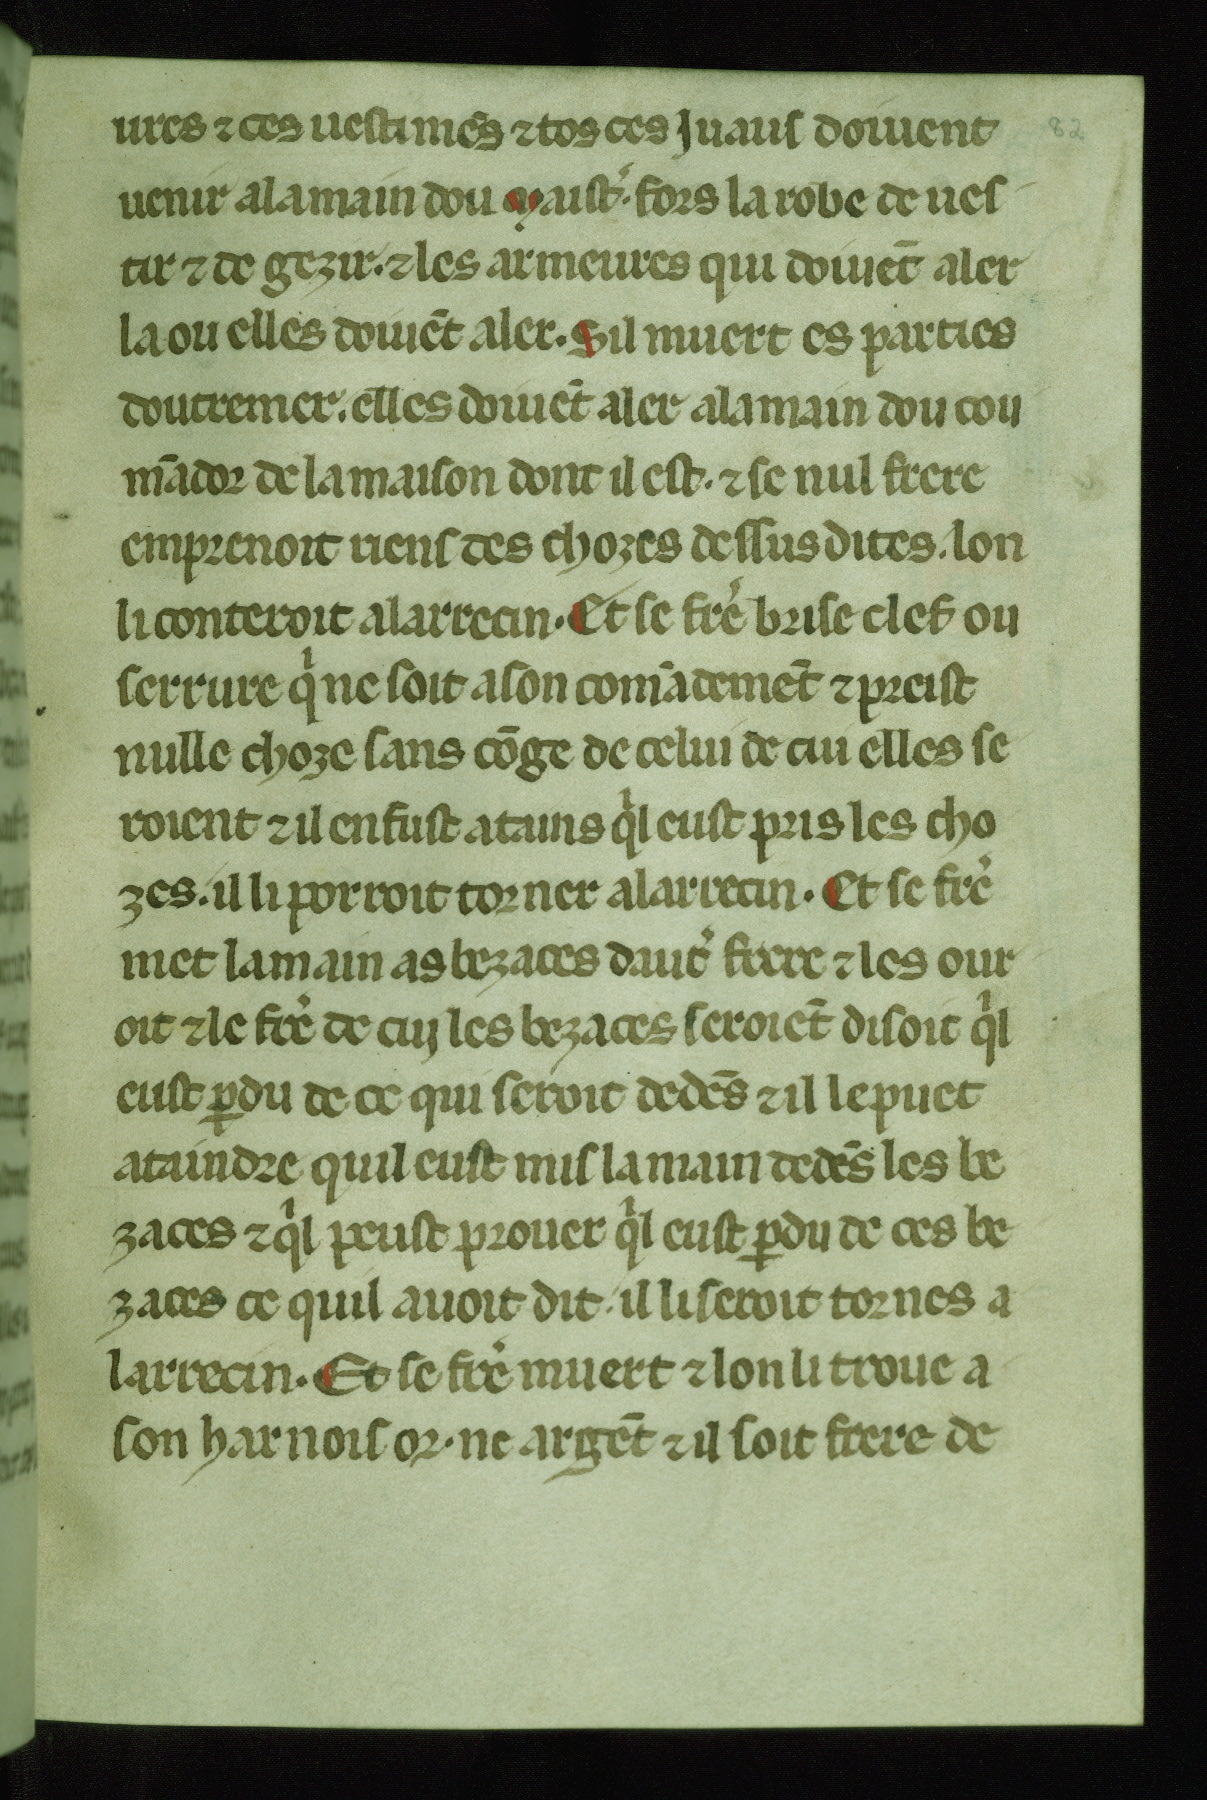 82
ures ⁊ ces uestimēs ⁊ tos ces Juaus doiuent
uenir alamain dou Maistͬ. fors la robe de ues
tir ⁊ de gezir. ⁊ les armeures qui doiuēt aler
la ou elles doiuēt aler. Sil muert es parties
doutremer. elles doiuēt aler alamain dou cou
mādor de la maison dont il est. ⁊ se nul frere
emprenoit riens des chozes dessus dites. lon
li conteroit alarrecin. Et se frē brise clef ou
serrure qͥ ne soit a son comādemēt ⁊ preist
nulle choze sans cōge de celui de cui elles se
roient ⁊ il en fust atains qͥl eust pris les cho
zes. il li porroit torner alarrecin. Et se frē
met lamain as bezaces dautͬ frere ⁊ les our
oit ⁊ le frē de cuj les bezaces seroiēt disoit qͥl
eust ꝑdu de ce qui seroit dedēs ⁊ il le puet
ataindre quil eust mis la main dedēs les be
zaces ⁊ qͥl peust prouer qͥl eust ꝑdu de ces be
zaces ce quil auoit dit. il li seroit tornes a
larrecin. Et se frē muert ⁊ lon li troue a
son harnois or. ne argēt ⁊ il soit frere de